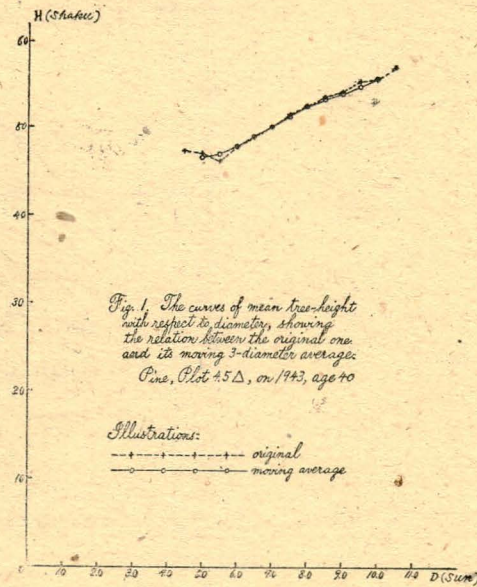 H (Shaku)
60
50
40
30
20
10
0
Fig. 1. The curves of mean tree-height
with respect to diameter, showing
the relation between the original one
and its moving 3-diameter average.
Pine, Plot 45 Δ, on 1943, age 40
Illustrations:
original
moving average
1.0 2.0 3.0 4.0 5.0 6.0 7.0 8.0 9.0 10.0 11.0 D (Sun)